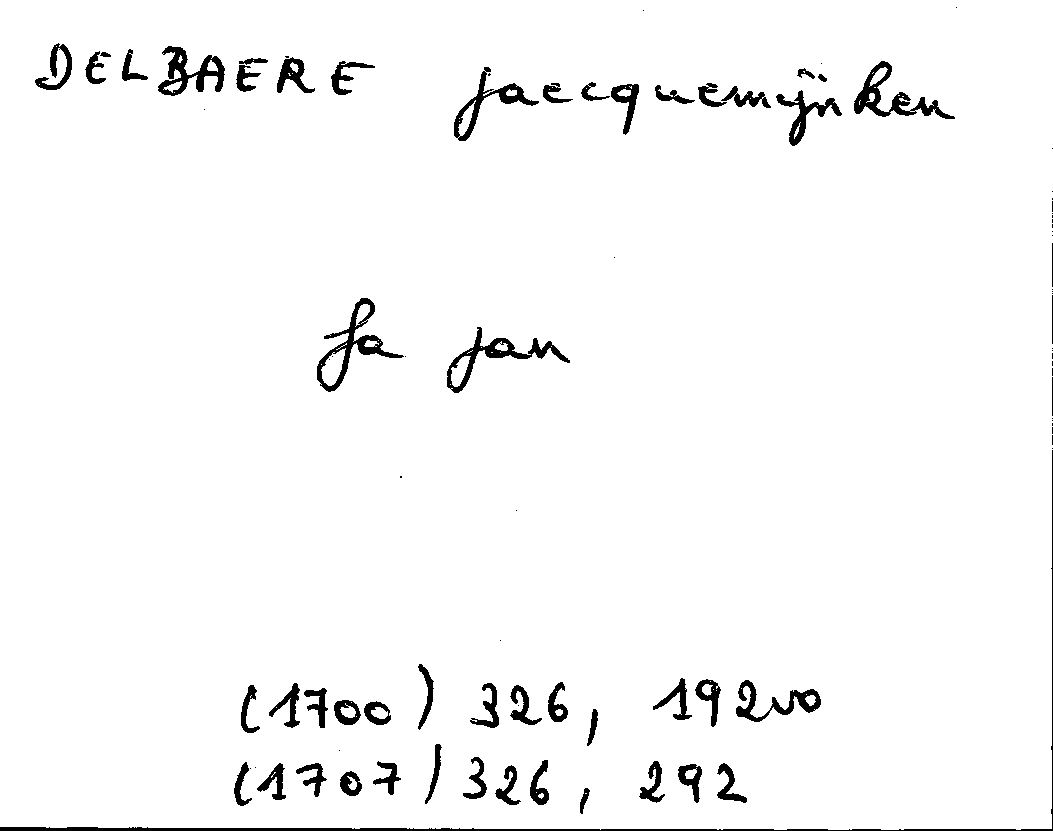 DELBAERE jaecquemijnken
fa jan
(1700) 326, 192vo
(1707) 326, 292